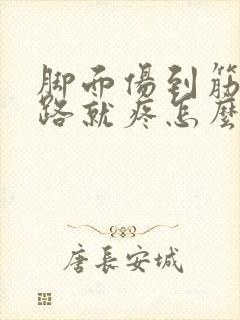 脚而傷到筋
路就疼怎麼
唐長安城